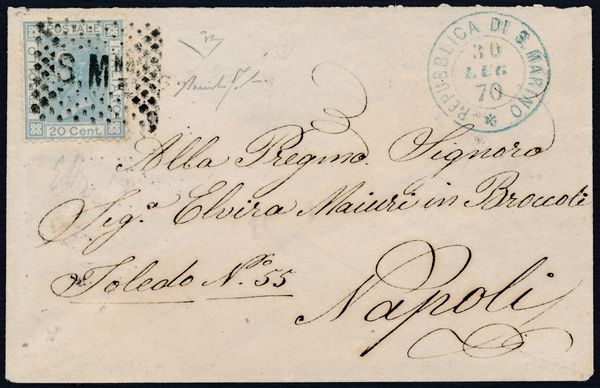 POSTALE
S. M
20 Cent.
REPUBBLICA DI S. MARINO
30
LUG
70
Alla Pregma. Signora
Sigª Elvira Maiuri in Broccoli
Toledo No. 55
Napoli